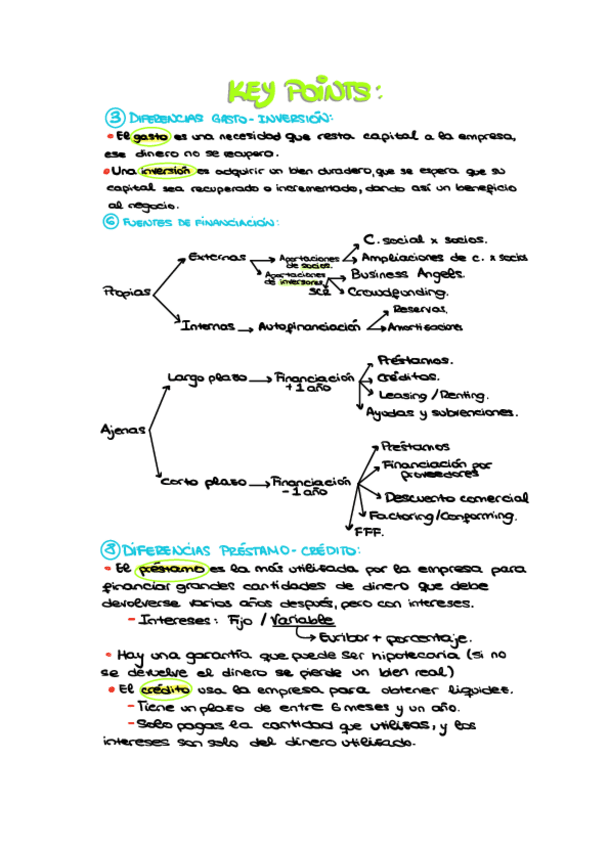 KEY POINTS:
③ DIFERENCIAS GASTO-INVERSIÓN:
• El gasto es una necesidad que resta capital a la empresa,
ese dinero no se recupero.
• Una inversión es adquirir un bien duradero, que se espera que su
capital sea recuperado o incrementado, dando así un beneficio
al negocio.
⑥ FUENTES DE FINANCIACIÓN:
C. social x socios.
Externas → Aportaciones de socios. → Ampliaciones de c. x socios
Aportaciones de inversores → Business Angels.
Propias
SCR
Crowdfunding.
Reservas.
Internas → Autofinanciación → Amortizaciones
Préstamos.
Largo plazo → Financiación + 1 año → Créditos.
Leasing / Renting.
Ayudas y subvenciones.
Ajenas
Préstamos
Financiación por proveedores
Corto plazo → Financiación - 1 año
Descuento comercial
Factoring / Confirming.
FFF.
⑧ DIFERENCIAS PRÉSTAMO-CRÉDITO:
• El préstamo es la más utilizada por la empresa para
financiar grandes cantidades de dinero que debe
devolverse varios años después, pero con intereses.
- Intereses: Fijo / Variable
↳ Euribor + porcentaje.
• Hay una garantía que puede ser hipotecaria (si no
se devuelve el dinero se pierde un bien real)
• El crédito usa la empresa para obtener liquidez.
- Tiene un plazo de entre 6 meses y un año.
- Solo pagas la cantidad que utilizas, y los
intereses son solo del dinero utilizado.